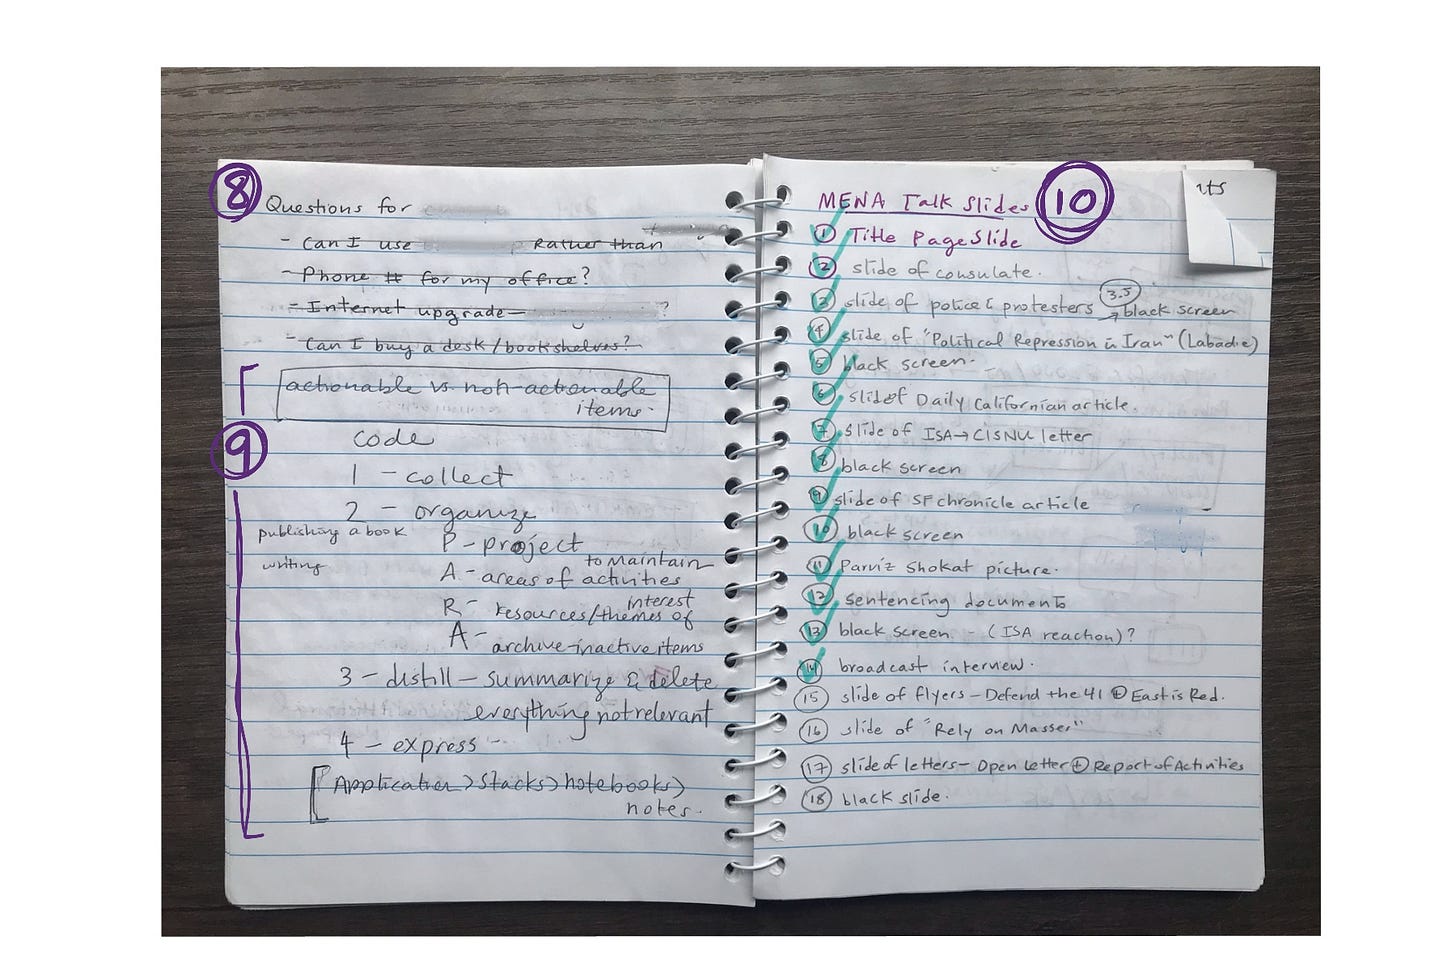 8
Questions for
- Can I use Rather than
- Phone # for my office?
- Internet upgrade - ?
- Can I buy a desk/bookshelves?
actionable vs. not-actionable
items.
9
code
1 - collect
2 - organize
publishing a book
writing
P - project
A - areas of activities to maintain
R - resources/themes of interest
A - archive-inactive items
3 - distill - summarize & delete
everything not relevant
4 - express -
Application > Stacks > notebooks >
notes.
MENA Talk Slides
10
nts
1 Title Page Slide
2 slide of consulate.
3 slide of police & protesters 3.5 → black screen
4 slide of "Political Repression in Iran" (Labadie)
5 black screen.
6 slide of Daily Californian article.
7 slide of ISA → CISNU letter
8 black screen
9 slide of SF chronicle article
10 black screen
11 Parviz Shokat picture.
12 sentencing documents
13 black screen - (ISA reaction)?
14 broadcast interview.
15 slide of flyers - Defend the 41 + East is Red.
16 slide of "Rely on Masses"
17 slide of letters - Open Letter + Report of Activities
18 black slide.